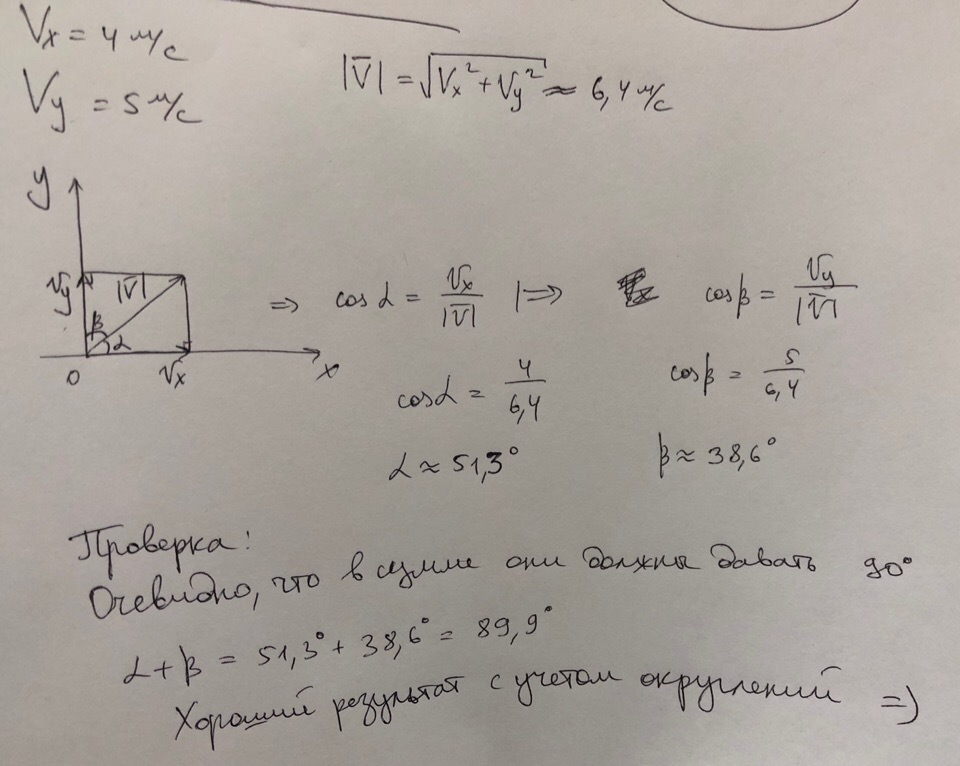 Vx = 4 м/с
|V̅| = √(Vx² + Vy²) ≈ 6,4 м/с
Vy = 5 м/с
y
Vy
|V̅|
β
α
0
Vx
x
=> cos α = Vx/|V̅| |=> cos β = Vy/|V̅|
cos α = 4/6,4 cos β = 5/6,4
α ≈ 51,3° β ≈ 38,6°
Проверка:
Очевидно, что в сумме они должны давать 90°
α + β = 51,3° + 38,6° = 89,9°
Хороший результат с учетом округлений =)